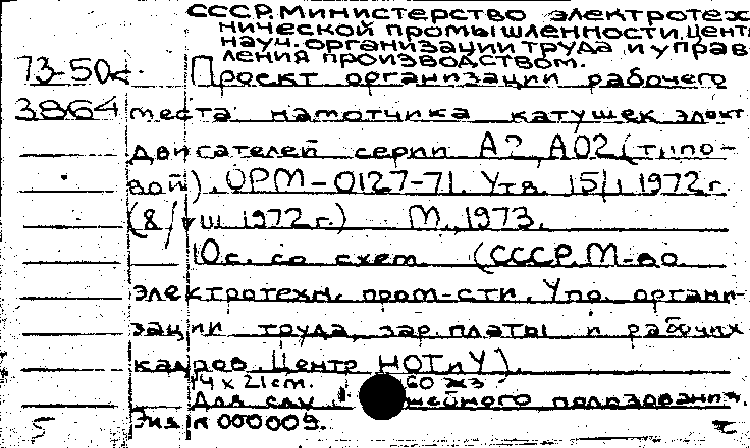 СССР. Министерство электротех-
нической промышленности. Центр
науч. организации труда и управ-
ления производством.
73-50к. Проект организации рабочего
3864 места намотчика катушек элект
двигателей серии А2, АО2 (типо-
вой). ОРМ-0127-71. Утв. 15/I 1972г.
(8/ III 1972г.) М., 1973.
10с. со схем. (СССР. М-во
электротехн. пром-сти. Упр. органи-
зации труда, зар. платы и рабочих
кадров. Центр НОТиУ).
21см. 60 экз
Для слу жебного пользования.
Экз N 000009.